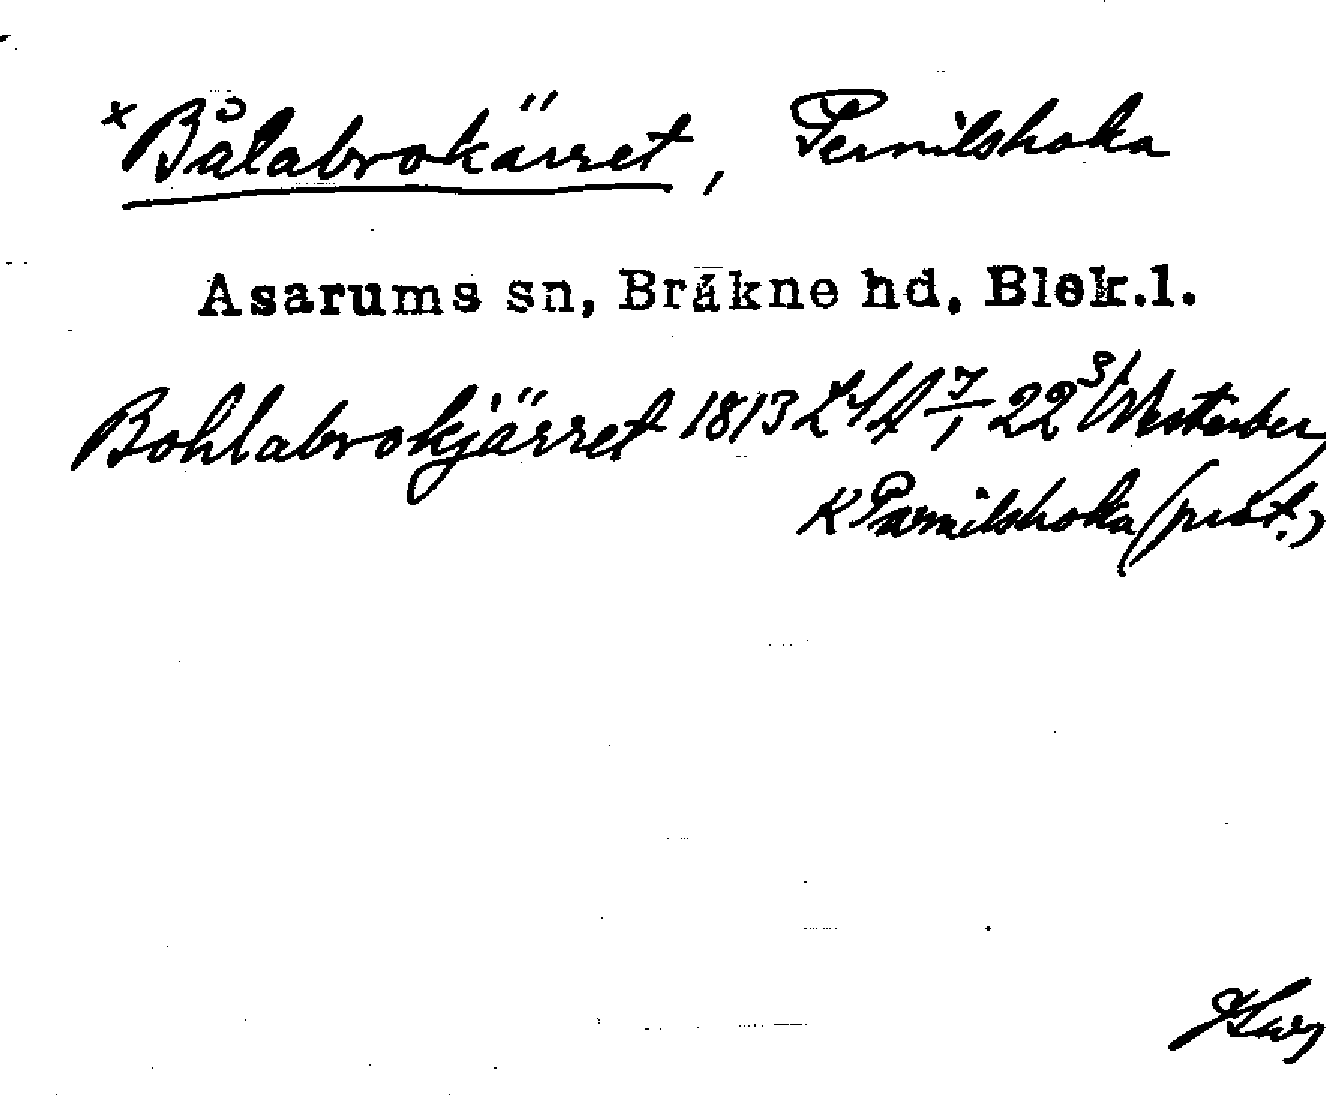 x Bålabrokärret, Permilshoka
Asarums sn, Bräkne hd, Blek.l.
Bohlabrokjärret 1813 LSA 7/1 22 3/
K Parmilshoka (prot.)